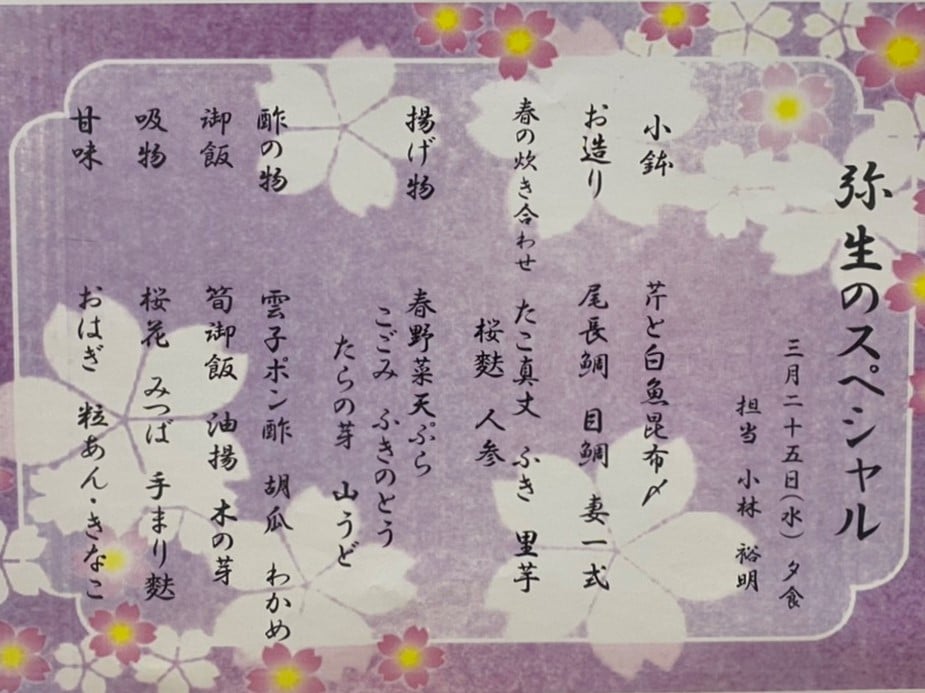 弥生のスペシャル
三月二十五日(水) 夕食
担当 小林 裕明
小鉢 芹と白魚昆布〆
お造り 尾長鯛 目鯛 妻一式
春の炊き合わせ たこ真丈 ふき 里芋
桜麩 人参
揚げ物 春野菜天ぷら
こごみ ふきのとう
たらの芽 山うど
酢の物 雲子ポン酢 胡瓜 わかめ
御飯 筍御飯 油揚 木の芽
吸物 桜花 みつば 手まり麩
甘味 おはぎ 粒あん・きなこ